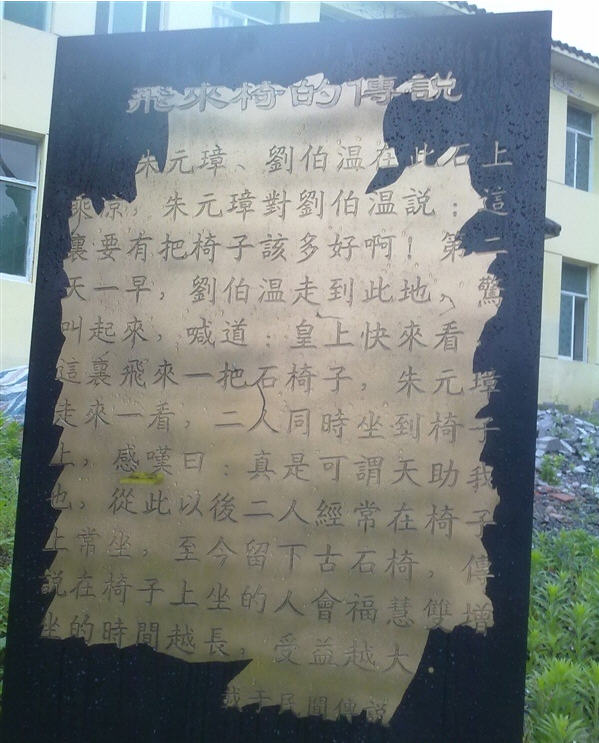 飛來椅的傳説
朱元璋、劉伯温在此石上
乘凉，朱元璋對劉伯温説：這
裏要有把椅子該多好啊！第二
天一早，劉伯温走到此地，驚
叫起來，喊道：皇上快來看，
這裏飛來一把石椅子，朱元璋
走來一看，二人同時坐到椅子
上，感嘆曰：真是可謂天助我
也，從此以後二人經常在椅子
上常坐，至今留下古石椅，傳
説在椅子上坐的人會福慧雙增
坐的時間越長，受益越大
載于民間傳説